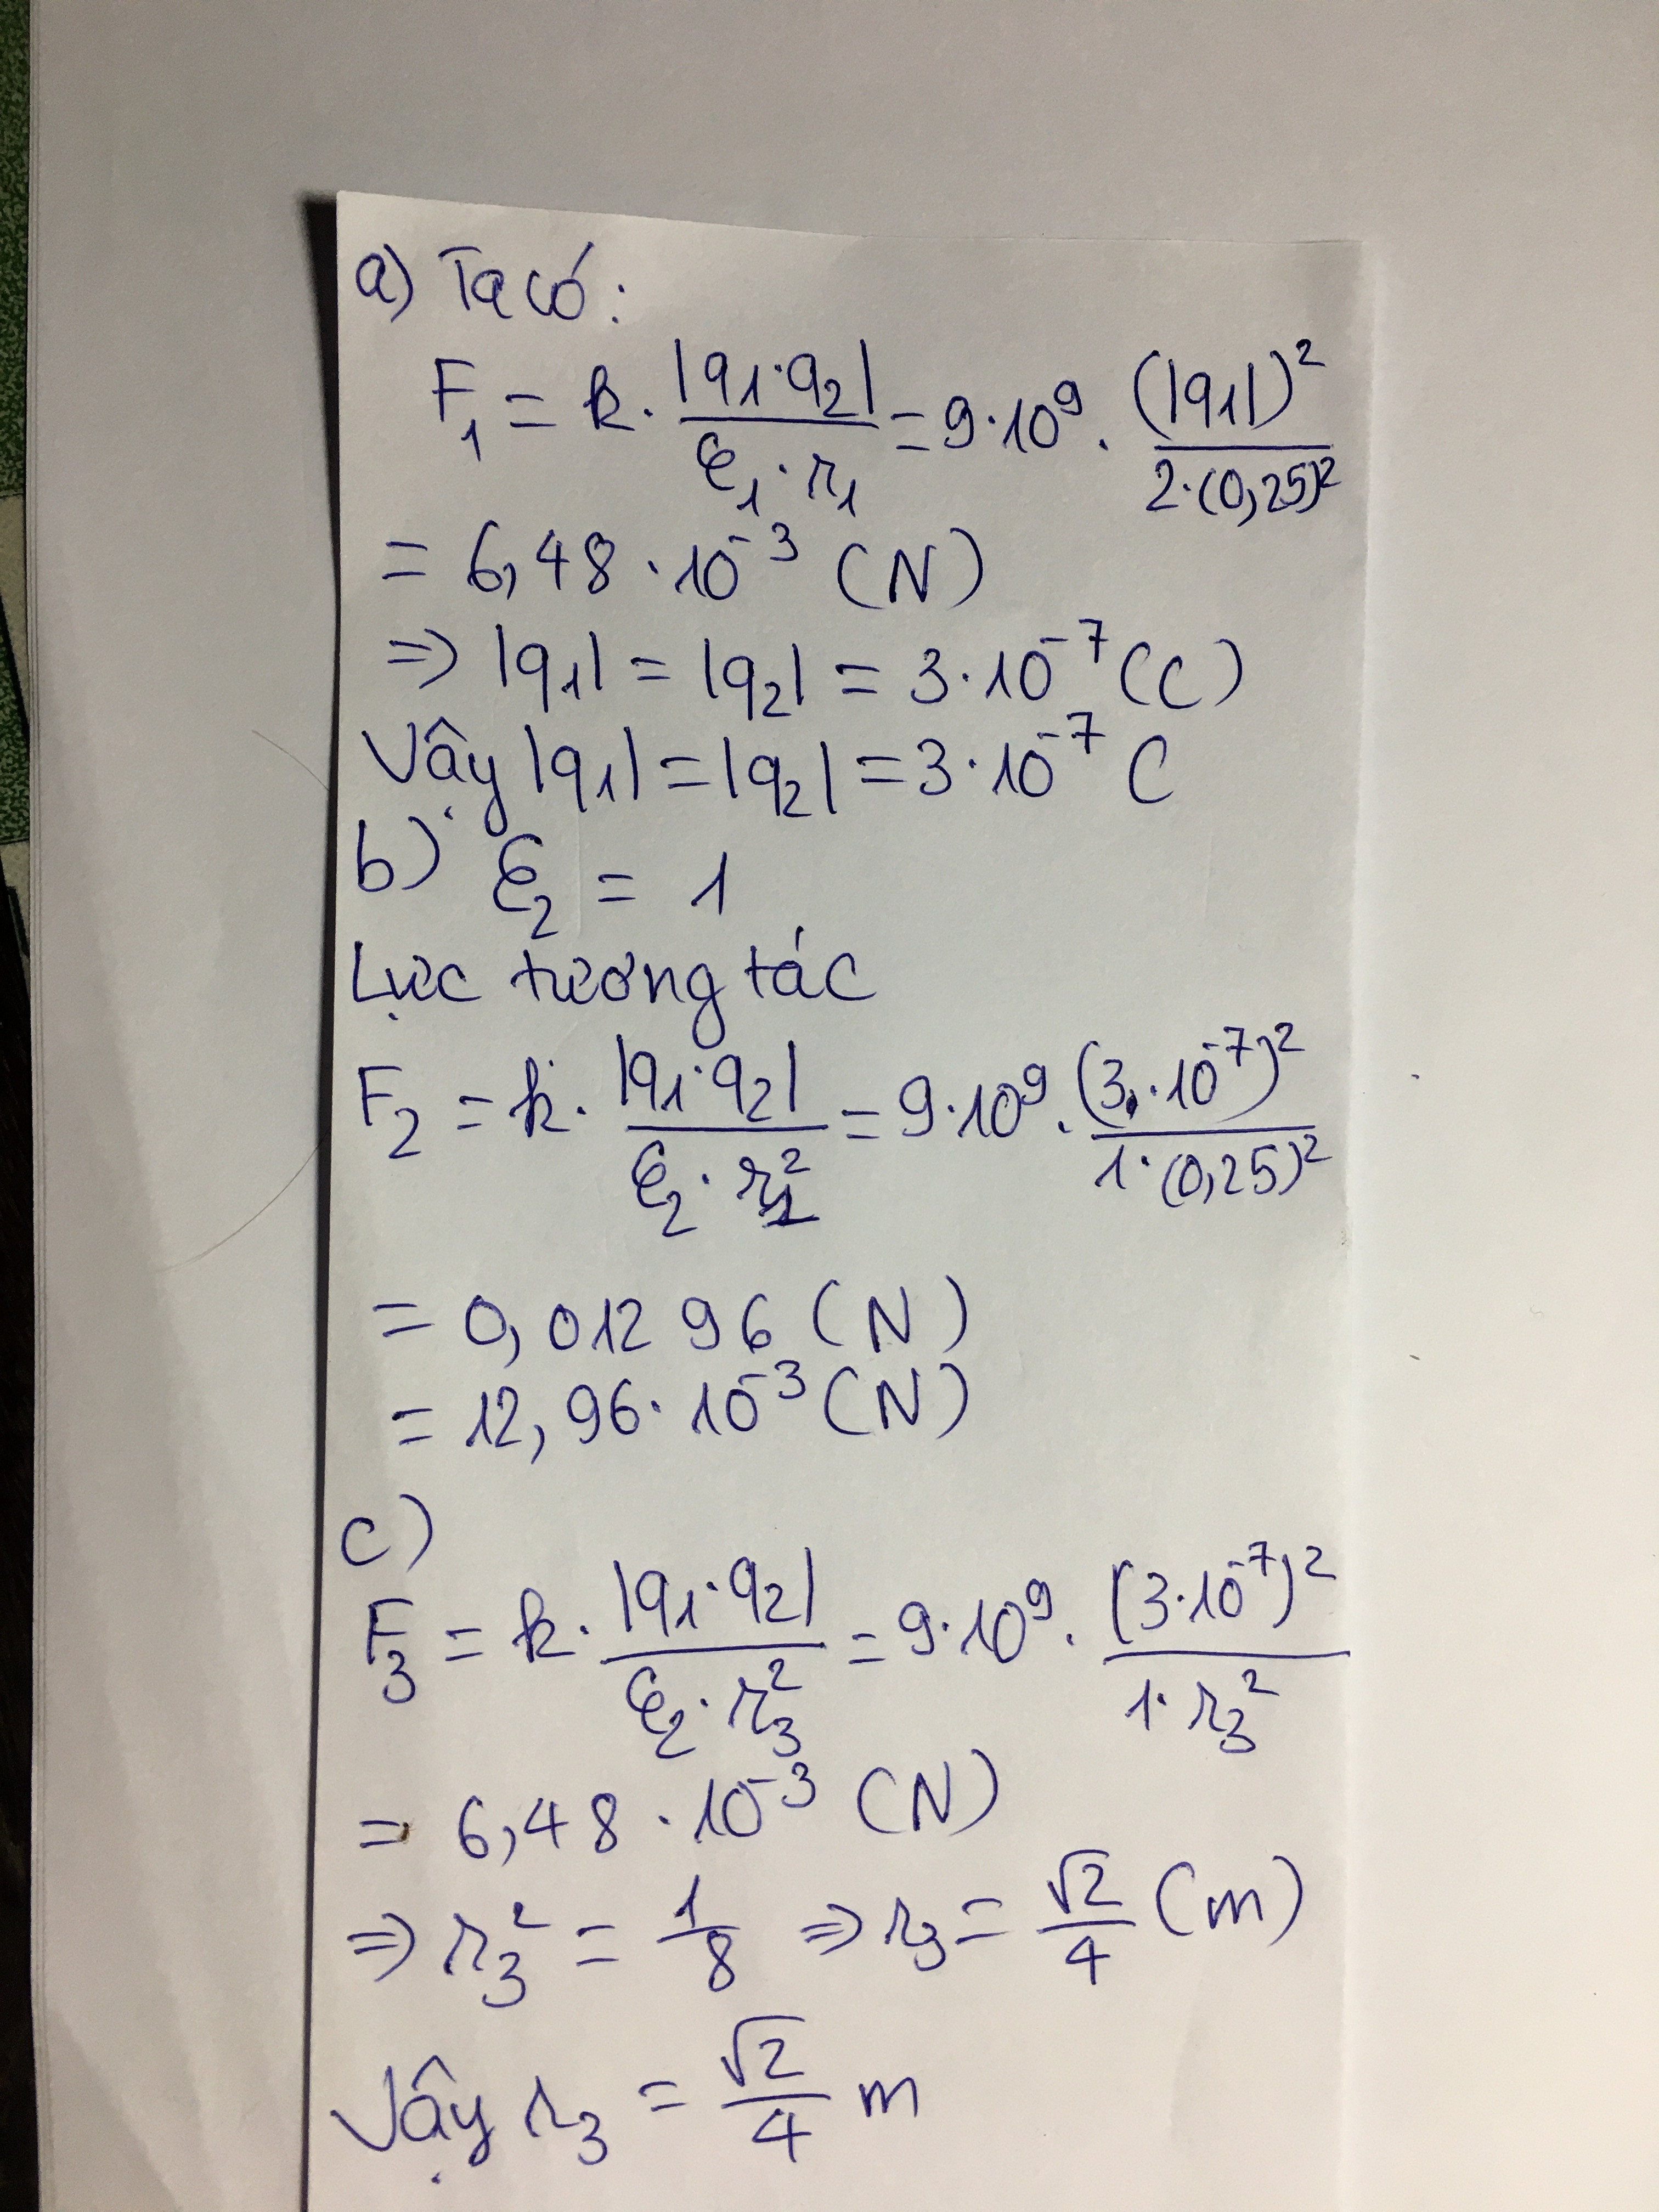 a) Ta có:
F₁ = k. |q₁·q₂| / ε₁·r₁ = 9·10⁹ · (|q₁|)² / 2·(0,25)²
= 6,48 · 10⁻³ (N)
=> |q₁| = |q₂| = 3·10⁻⁷ (C)
Vậy |q₁| = |q₂| = 3·10⁻⁷ C
b) ε₂ = 1
Lực tương tác
F₂ = k. |q₁·q₂| / ε₂·r₁² = 9·10⁹ · (3·10⁻⁷)² / 1·(0,25)²
= 0,01296 (N)
= 12,96·10⁻³ (N)
c)
F₃ = k. |q₁·q₂| / ε₂·r₃² = 9·10⁹ · (3·10⁻⁷)² / 1·r₃²
= 6,48 · 10⁻³ (N)
=> r₃² = 1/8 => r₃ = √2/4 (m)
Vậy r₃ = √2/4 m